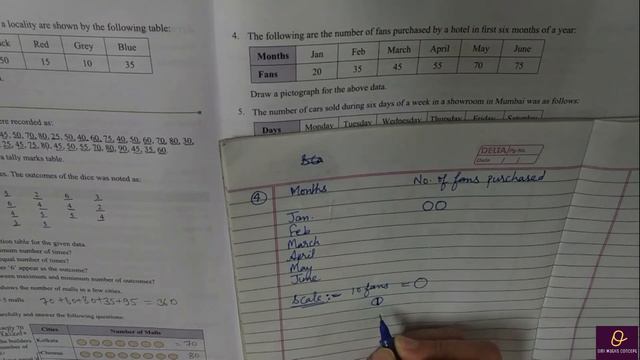 a locality are shown by the following table:
Red Grey Blue
50 15 10 35
4. The following are the number of fans purchased by a hotel in first six months of a year:
Months Jan Feb March April May June
Fans 20 35 45 55 70 75
Draw a pictograph for the above data.
5. The number of cars sold during six days of a week in a showroom in Mumbai was as follows:
Days Monday Tuesday Wednesday Thursday Friday Saturday
recorded as:
45, 50, 70, 80, 25, 50, 40, 60, 75, 40, 50, 60, 70, 80, 30,
25, 45, 75, 80, 45, 50, 55, 70, 80, 90, 45, 35, 60.
a tally marks table.
es. The outcomes of the dice was noted as:
tion table for the given data.
nimum number of times?
equal number of times?
'6' appear in the outcome?
tween maximum and minimum number of outcomes?
shows the number of malls in a few cities.
5 malls 70+80+80+35+95 = 360
carefully and answer the following questions:
Cities Number of Malls
Kolkata = 70
Chennai 80
DELTA Pg No.
Date / /
④ Months No. of fans purchased
Jan.
Feb
March
April
May
June
Scale:- 10 fans =
SIRI MADAS CONCEPT